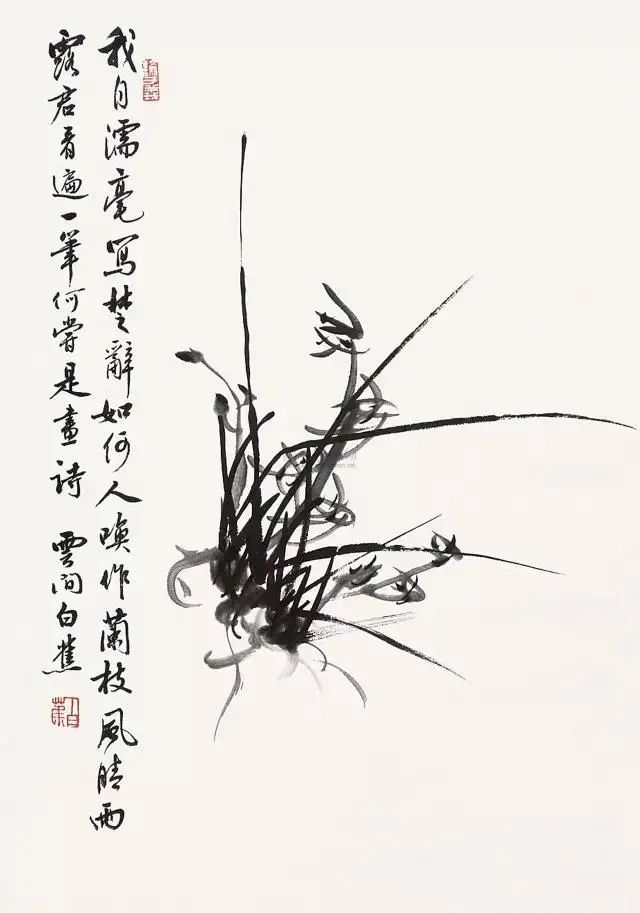 我自濡毫寫楚辭如何人喚作蘭枝風晴雨
露君看遍一筆何嘗是畫詩 雲間白蕉
白蕉